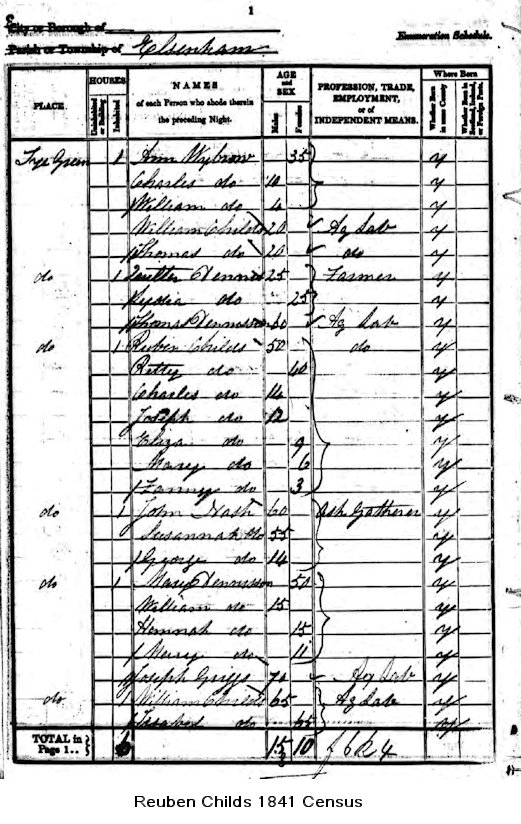 1
City or Borough of
Parish or Township of Elsenham
Enumeration Schedule.
PLACE
HOUSES
Uninhabited or Building
Inhabited
NAMES
of each Person who abode therein the preceding Night.
AGE and SEX
Males
Females
PROFESSION, TRADE, EMPLOYMENT, or of INDEPENDENT MEANS.
Where Born
Whether Born in same County
Whether Born in Scotland, Ireland, or Foreign Parts.
Tye Green 1 Ann Wybrow 35 y
Charles do 10 y
William do 4 y
William Childs 20 Ag Lab y
Thomas do 20 do y
do 1 Dennis 25 Farmer y
Lydia do 25 y
Thomas Dennisson 60 Ag Lab y
do 1 Reuben Childs 50 do y
Betty do 40 y
Charles do 14 y
Joseph do 12 y
Eliza do 9 y
Mary do 6 y
Fanny do 3 y
do 1 John Nash 60 Ash Gatherer y
Susannah do 55 y
George do 14 y
do 1 Mary Dennisson 50 y
William do 15 y
Hannah do 15 y
Mary do 11 y
Joseph Griggs 70 Ag Lab y
do 1 William Childs 65 Ag Lab y
do 65 y
TOTAL in Page 1.. 6 15 10
Reuben Childs 1841 Census